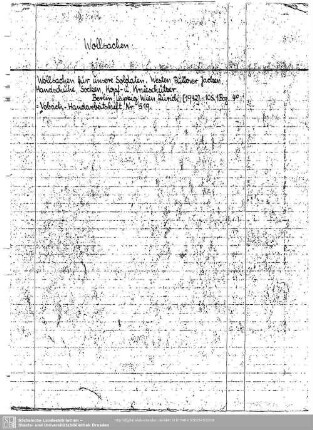 Wollsachen.
Wollsachen für unsere Soldaten. Westen Pullover Jacken,
Handschuhe Socken, Kopf- u. Knieschützer.
Berlin Leipzig Wien Zürich: [1942]. 10 S. 1 Bog. 4°
= Vobach-Handarbeitsheft. Nr. 319.
Sächsische Landesbibliothek -
Staats- und Universitätsbibliothek Dresden